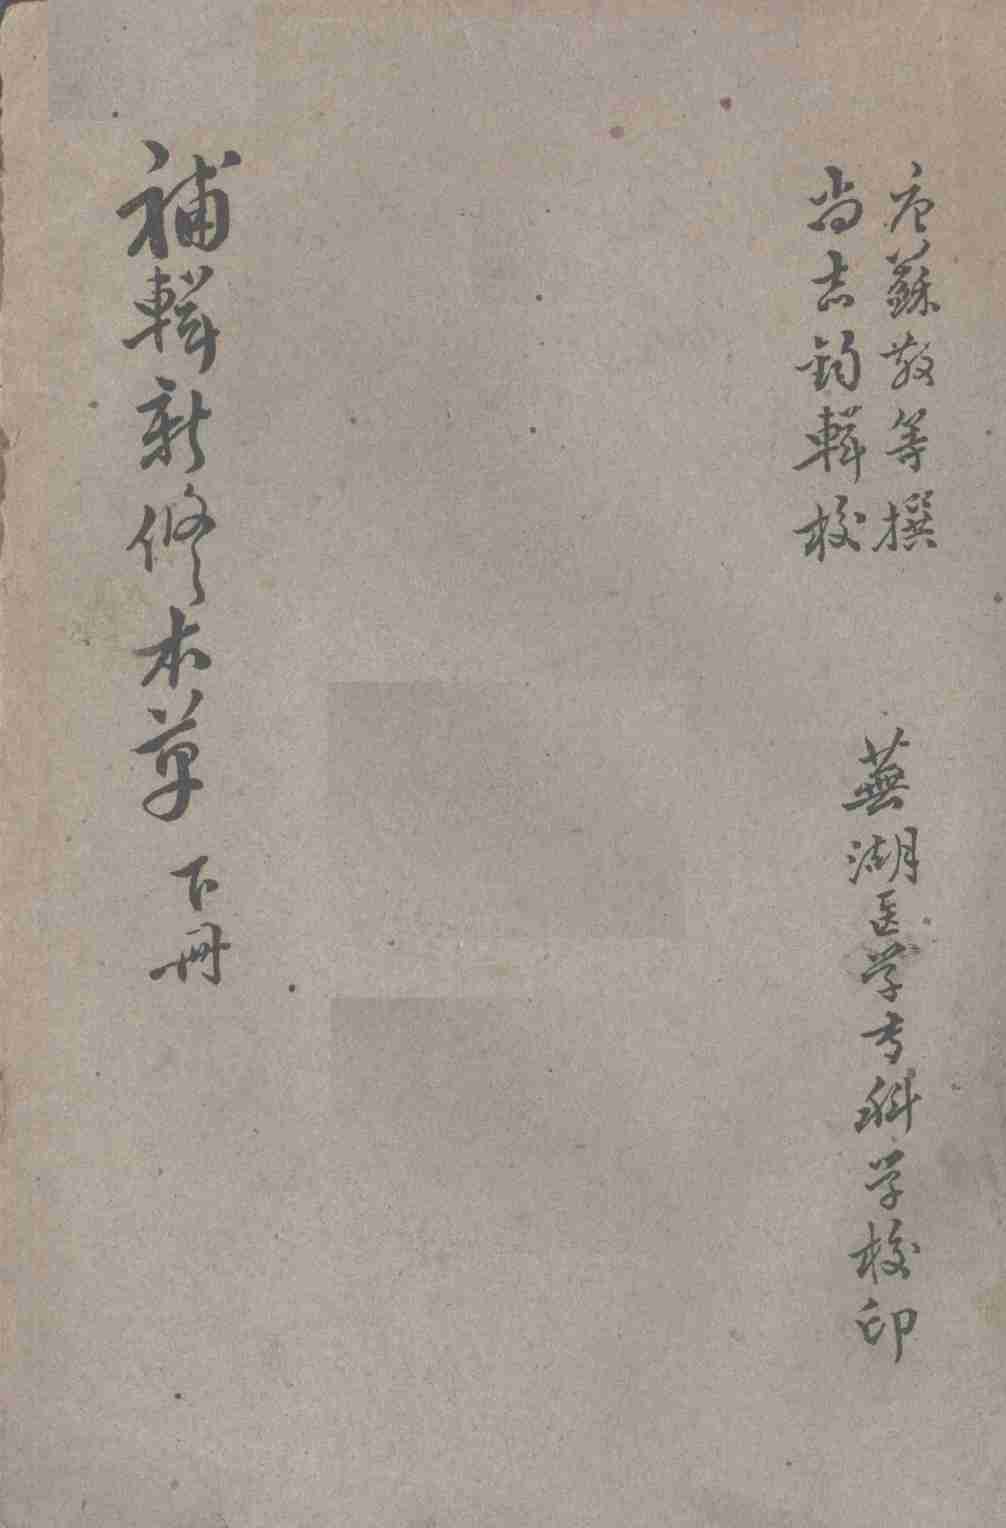 唐蘇敬等撰
尚志鈞輯校
蕪湖医学专科学校印
補輯新修本草 下冊